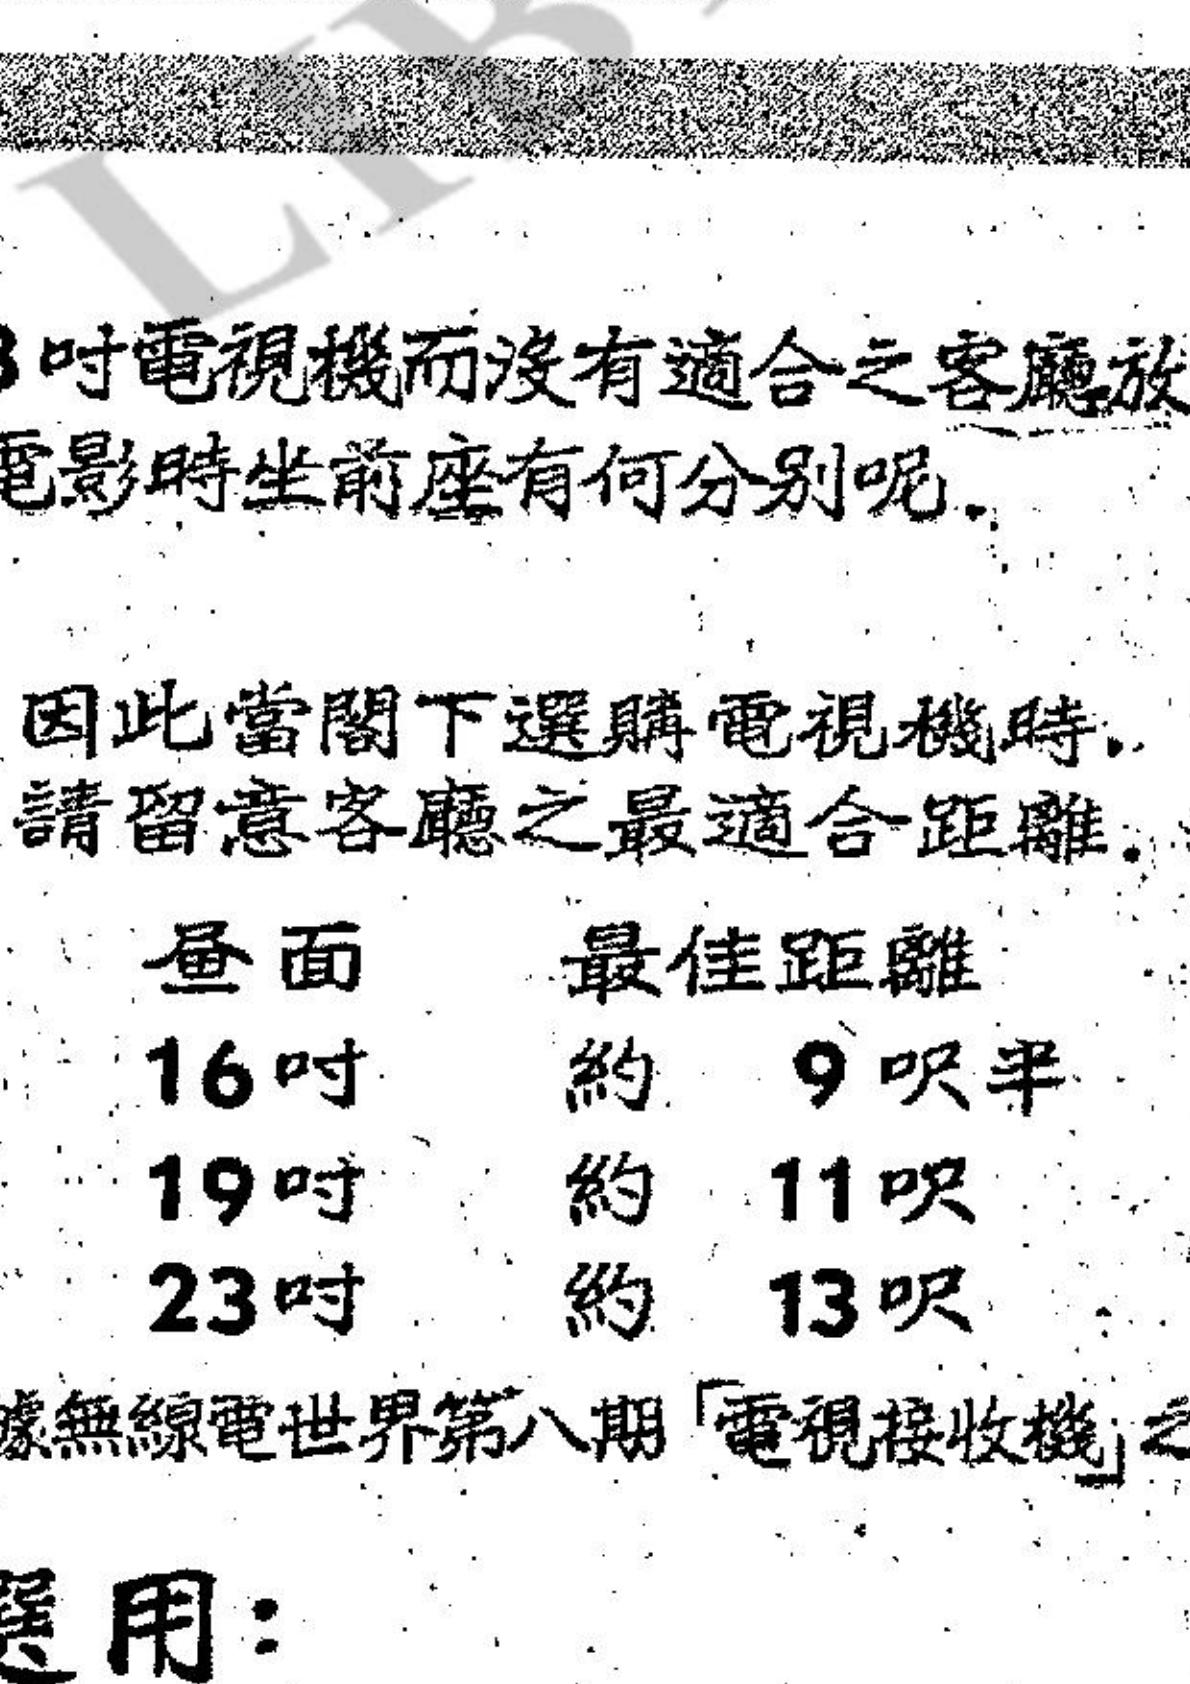 吋電視機而沒有適合之客廳放
電影時坐前座有何分別呢.
因此當閣下選購電視機時.
請留意客廳之最適合距離.
画面 最佳距離
16吋 約 9呎半
19吋 約 11呎
23吋 約 13呎
據無線電世界第八期「電視接收機」之
選用: